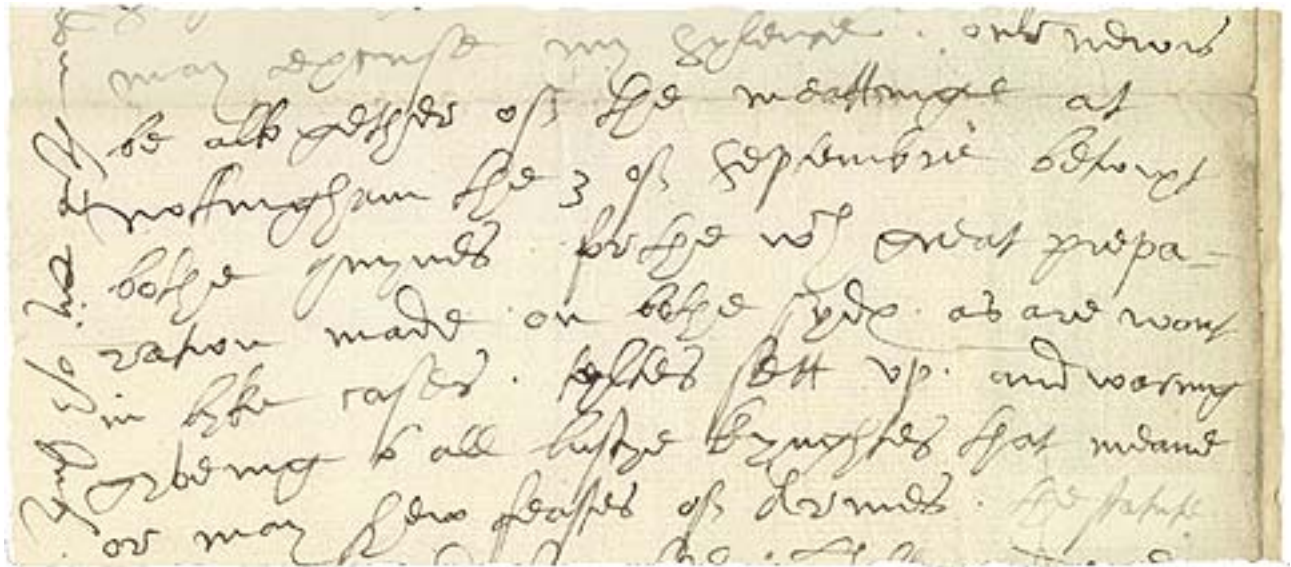 may excuse my sylence . owr newis
be all to gether off the meattinge at
nottingham the 3 off Septembrie betwixt
bothe quynes for the wch great prepa-
ration made on bothe sydes as are wont
in lyke cases . tyltes sett up and warning
gyveing to all lustye knyghtes that meane
or may shew feates off Armes . the